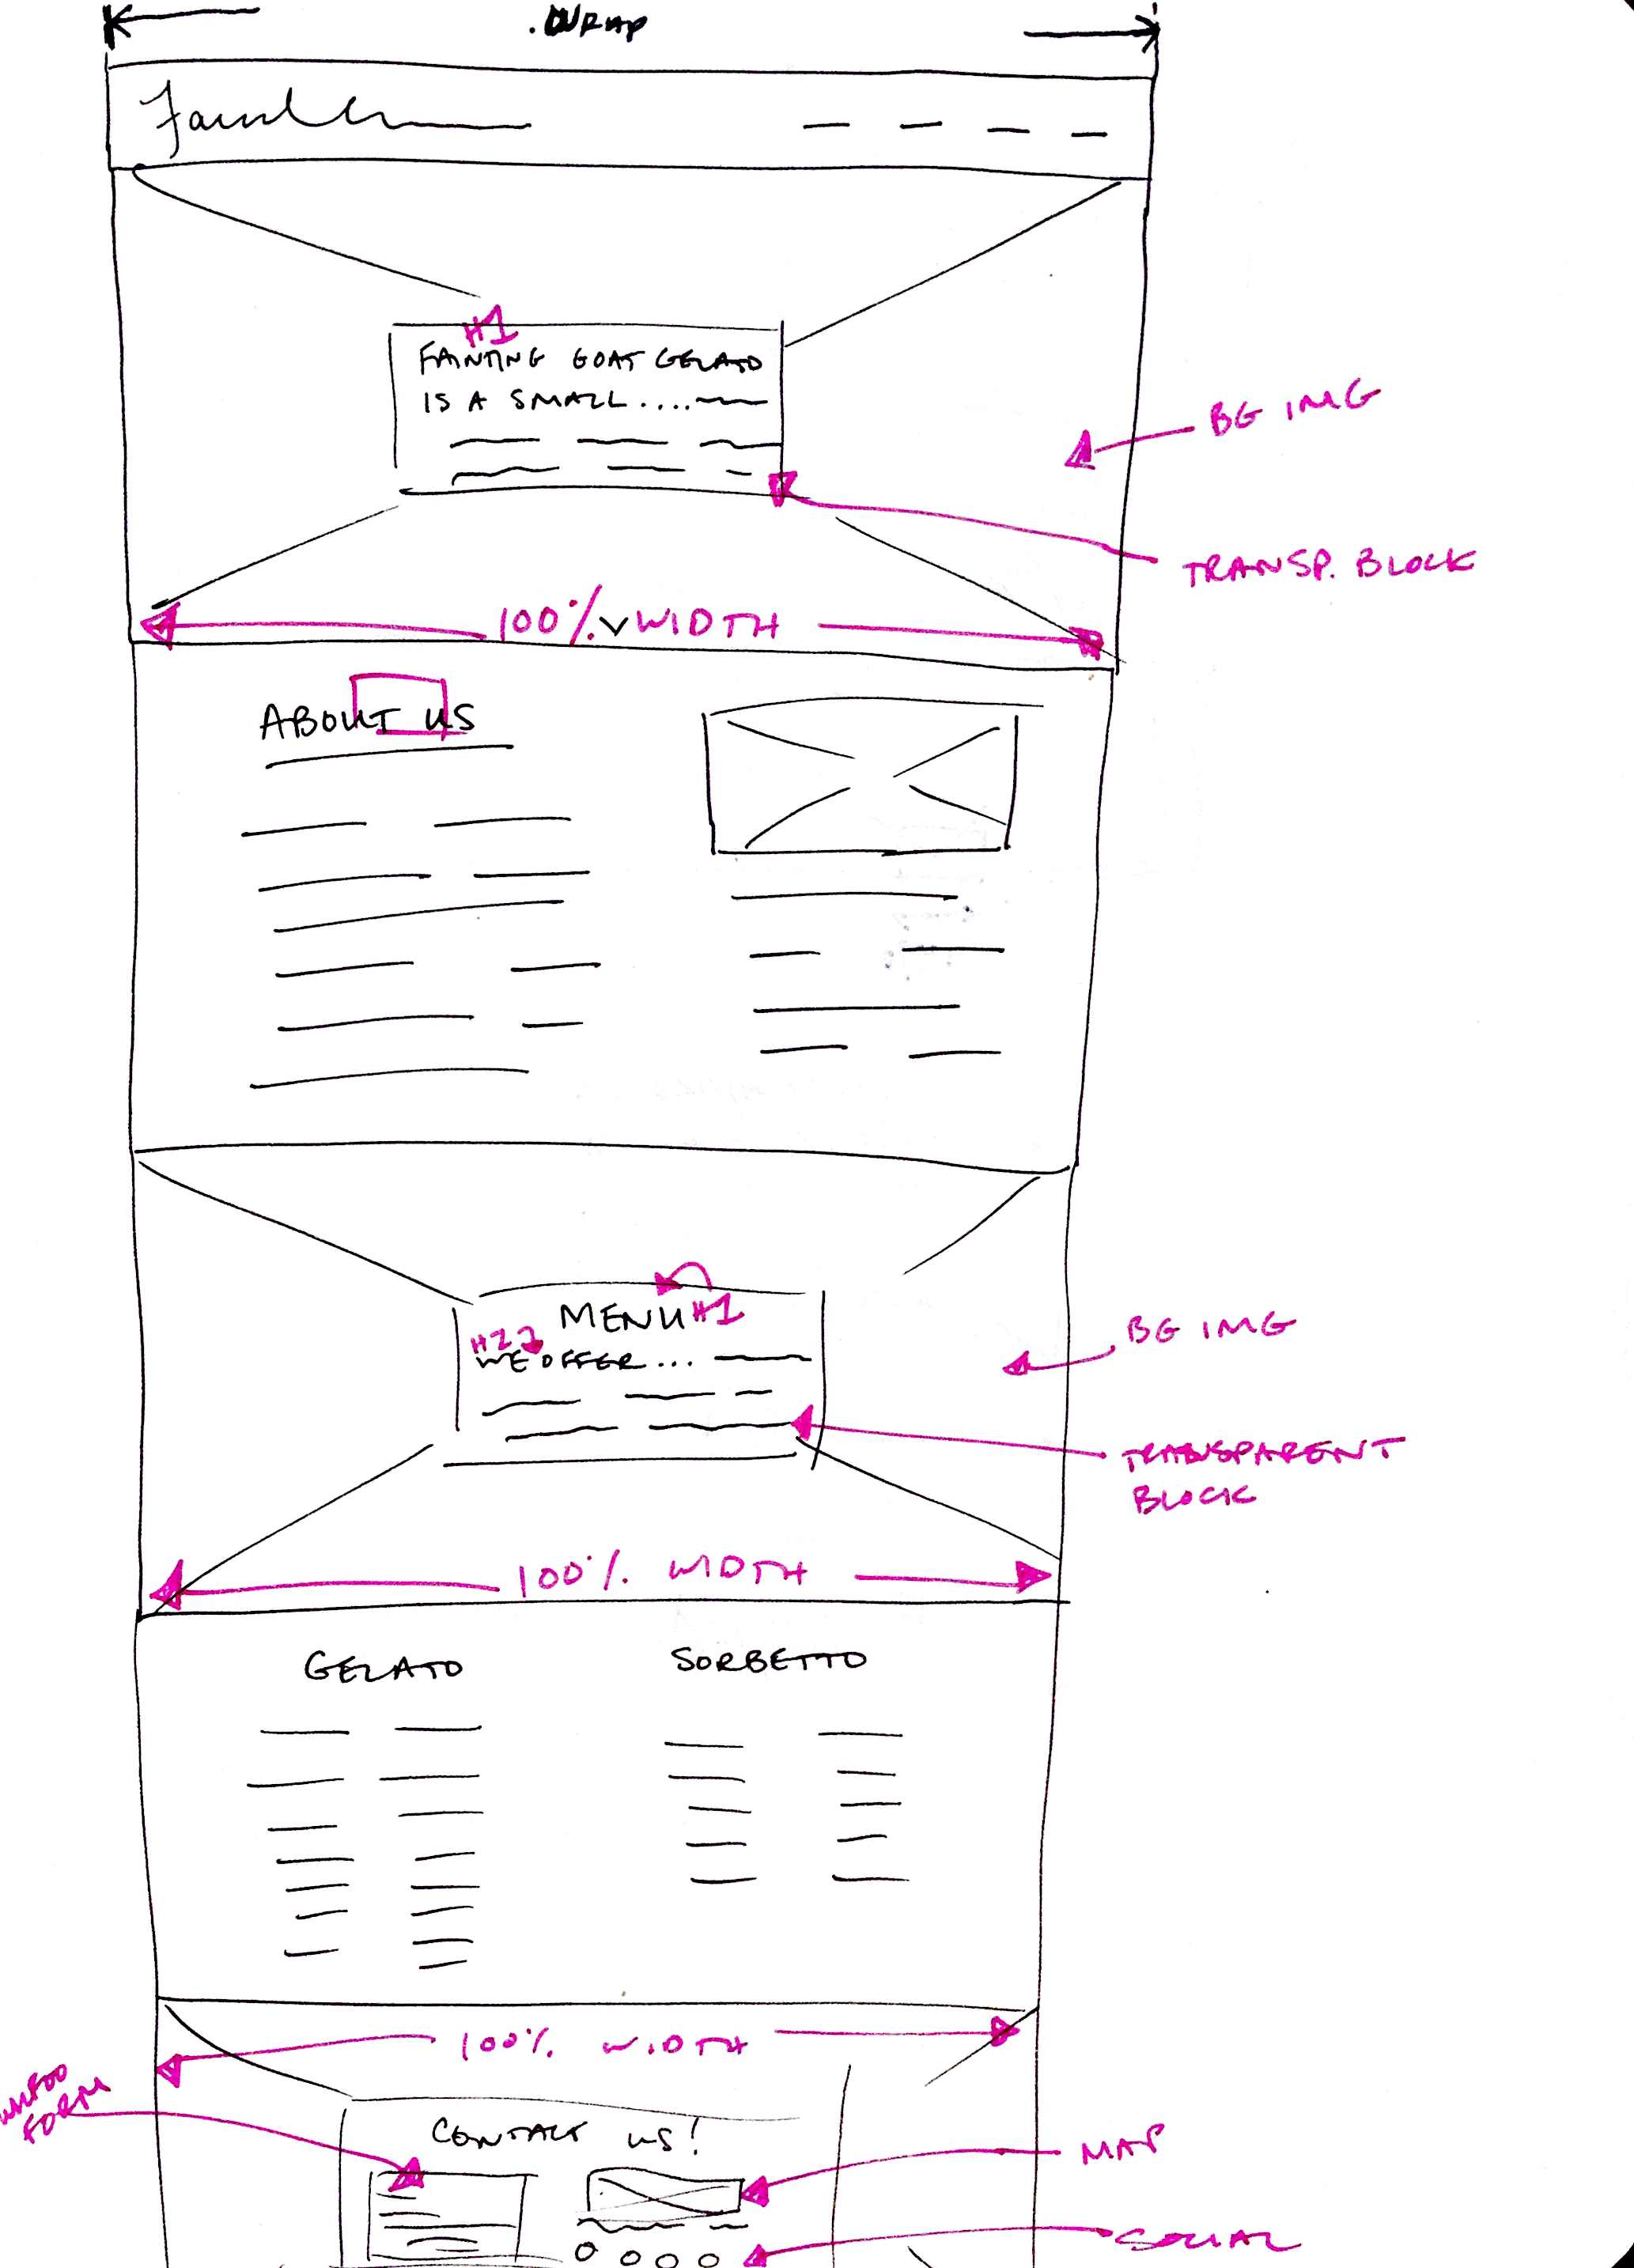 .WRAP
H1
FAINTING GOAT GELATO
IS A SMALL....
BG IMG
TRANSP. BLOCK
100% V WIDTH
ABOUT US
MENU H1
H2
WE OFFER...
BG IMG
TRANSPARENT
BLOCK
100% WIDTH
GELATO
SORBETTO
100% WIDTH
WUFOO
FORM
CONTACT US!
MAP
SOCIAL